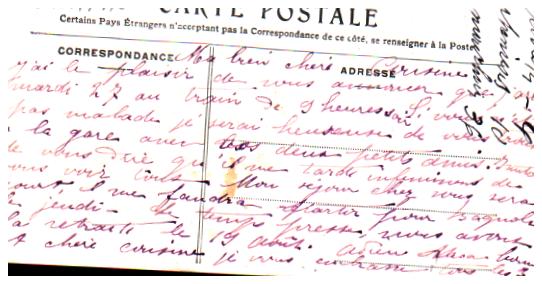 CARTE POSTALE
Certains Pays Étrangers n'acceptant pas la Correspondance de ce côté, se renseigner à la Poste
CORRESPONDANCE
ADRESSE
Ma bien chère Cousine
j'ai le plaisir de vous annoncer que
mardi 27 au train de 9 heures soir. Si vous
pas malade je serai heureuse de vous
la gare avec vos deux petits amis.
vous dire qu'il me tarde infiniment de
vous voir tous. Mon séjour chez vous sera
court il me faudra partir pour
jeudi. Le temps presse, nous avons
la retraite le 19 août. Adieu ma bonne
et chère cousine je vous embrasse tous les 3